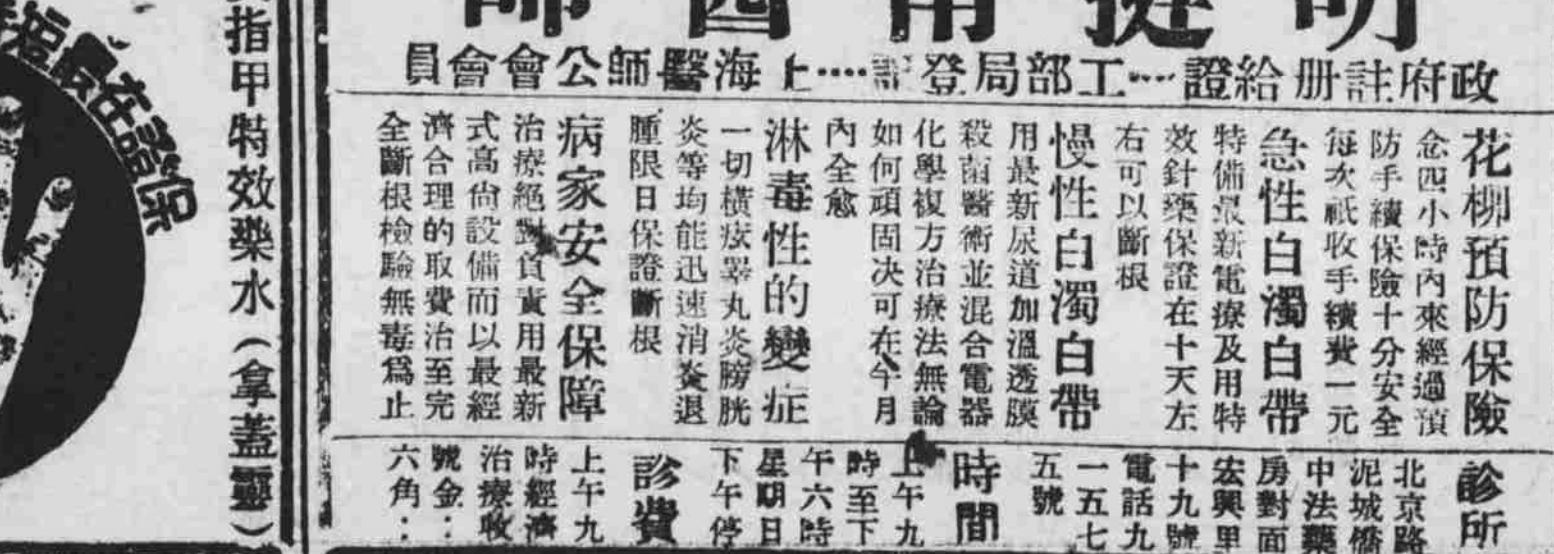 政府註册給證····工部局登記····上海醫師公會會員
花柳預防保險
念四小時內來經過預
防手續保險十分安全
每次祇收手續費一元
急性白濁白帶
特備最新電療及用特
效針藥保證在十天左
右可以斷根
慢性白濁白帶
用最新尿道加溫透膜
殺菌醫術並混合電器
化學複方治療法無論
如何頑固决可在半月
內全愈
淋毒性的變症
一切橫痃睪丸炎膀胱
炎等均能迅速消炎退
腫限日保證斷根
病家安全保障
治療絕對負責用最新
式高尙設備而以最經
濟合理的取費治至完
全斷根檢驗無毒爲止
診所
北京路
泥城橋
中法藥
房對面
宏興里
十九號
電話九
一五七
五號
時間
上午九
時至下
午六時
星期日
下午停
診費
上午九
時經濟
治療收
號金：
六角：
指甲特效藥水（拿蓋靈）
保證在